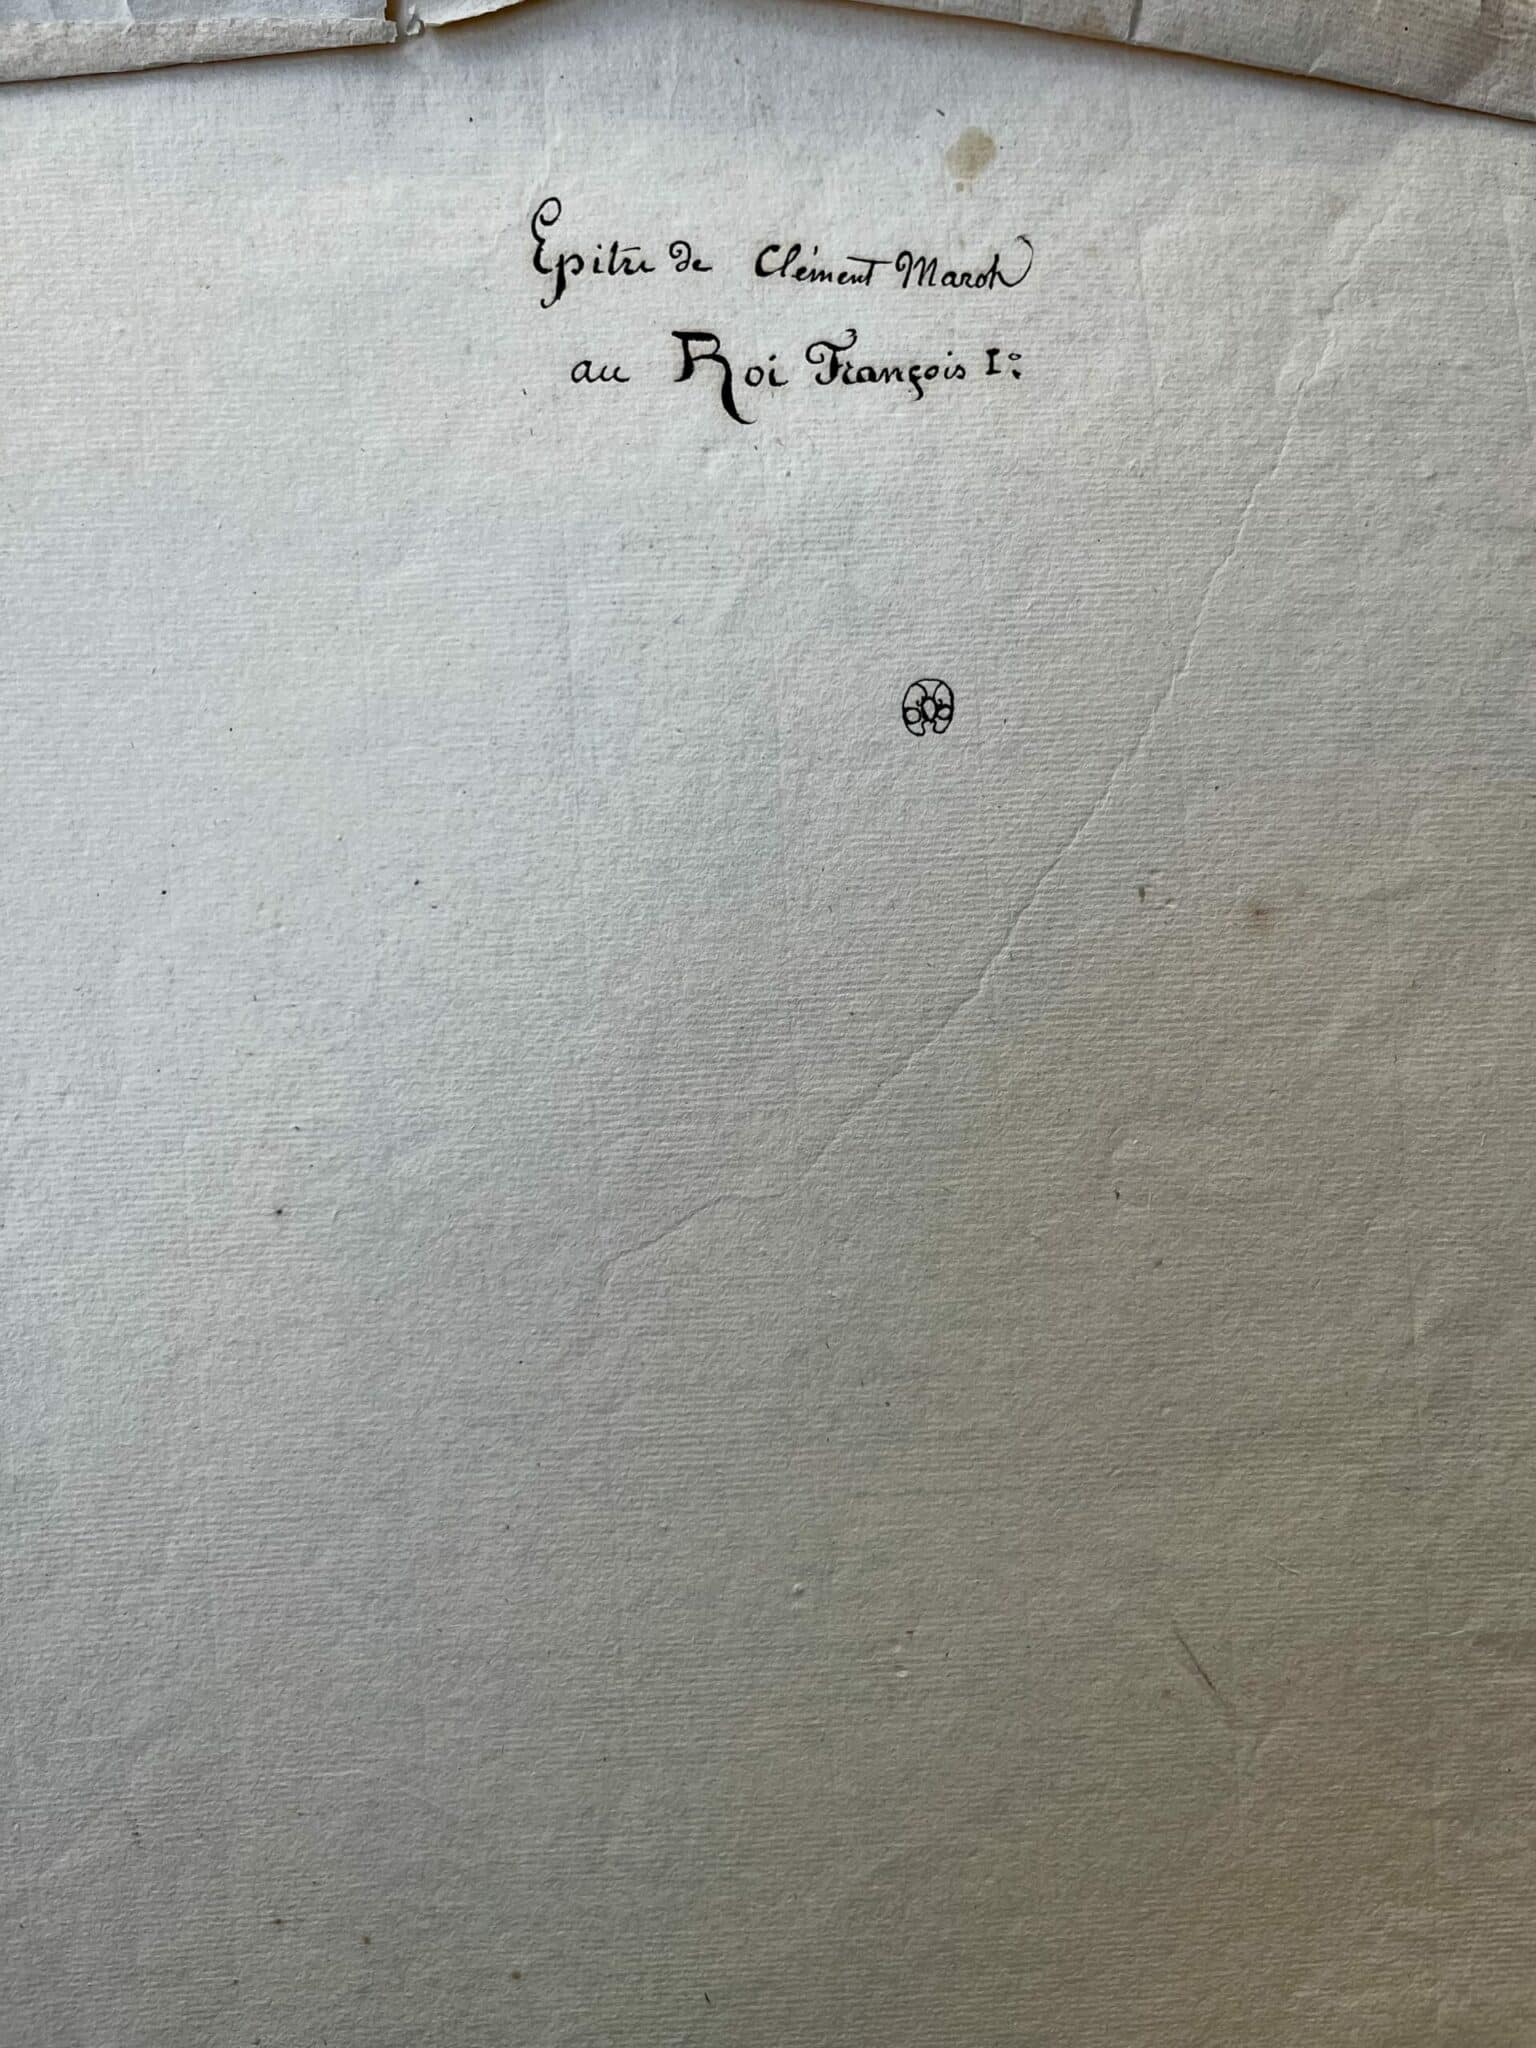 Epitre de Clément Marot
au Roi François I°: